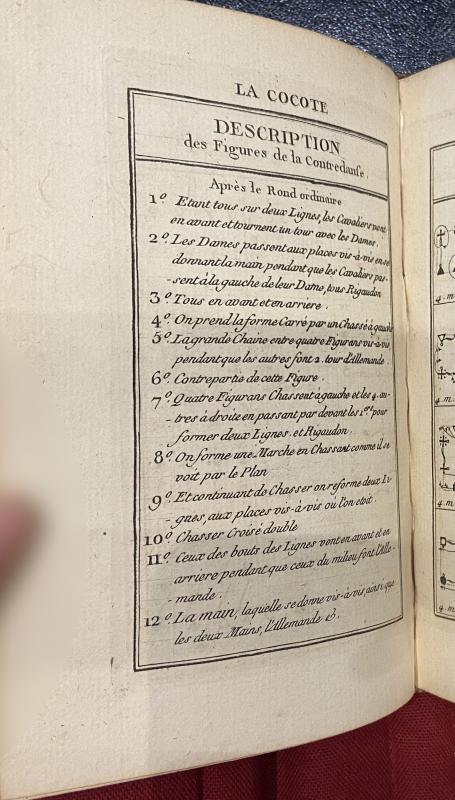 LA COCOTE
DESCRIPTION
des Figures de la Contredanse.
Après le Rond ordinaire
1.º Etant tous sur deux Lignes, les Cavaliers vont
en avant et tournent un tour avec les Dames.
2.º Les Dames passent aux places vis-à-vis en se
donnant la main pendant que les Cavaliers pas-
-sent à la gauche de leur Dame, tous Rigaudon
3º Tous en avant et en arriere.
4º On prend la forme Carré par un Chassé à gauche
5º La grande Chaine entre quatre Figurans vis-à-vis
pendant que les autres font 2. tour d'Allemande.
6º Contrepartie de cette Figure.
7º Quatre Figurans Chassent à gauche et les 4. au-
-tres à droite en passant par devant les 1.ers pour
former deux Lignes. et Rigaudon.
8º On forme une Marche en Chassant comme il se
voit par le Plan
9º Et continuant de Chasser on reforme deux Li-
-gnes, aux places vis-à-vis où l'on etoit.
10º Chasser Croisé double
11º Ceux des bouts des Lignes vont en avant et en
arriere pendant que ceux du milieu font l'Alle-
-mande.
12º La main, laquelle se donne vis-à-vis ainsi que
les deux Mains, l'Allemande &c.
4. m.
4. m
4. m
4. m